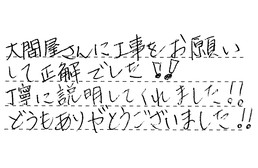 大問屋さんに工事をお願い
して正解でした!!
丁寧に説明してくれました!!
どうもありがとうございました!!